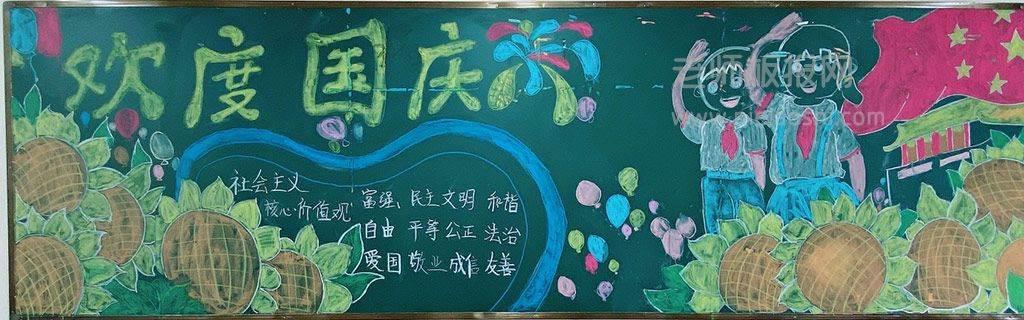 欢度国庆
社会主义
核心价值观
富强 民主 文明 和谐
自由 平等 公正 法治
爱国 敬业 成信 友善
老师板报网